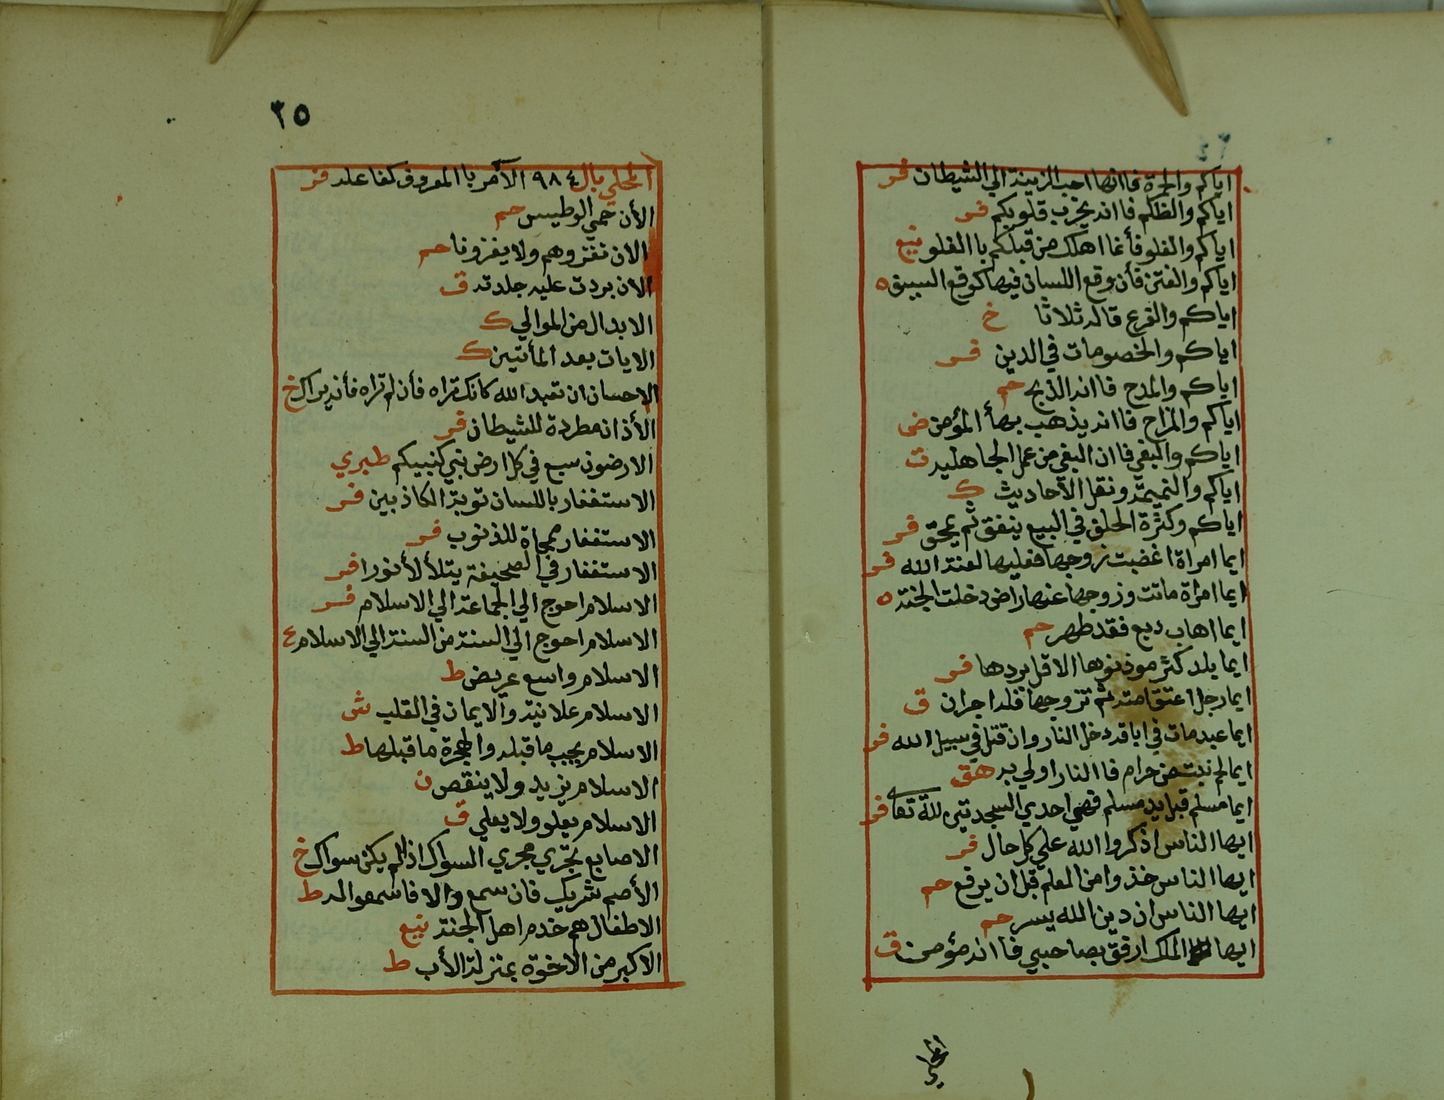 اياكم والحمرة فاانها احب الزينة الي الشيطان فر
اياكم والظلم فاانه يخرب قلوبكم فر
اياكم والغلو فأنما اهلك من قبلكم باالغلو نيع
اياكم والفتن فأن وقع اللسان فيها كوقع السيق ه
اياكم والفرع قاله ثلاثا خ
اياكم والخصومات في الدين فر
اياكم والمدح فاانه الذبح حم
اياكم والمزاح فاانه يذهب ببهأ المؤمن ض
اياكم والبغي فاان البغي من عمل الجاهليه ق
اياكم والنميمة ونقل الأحاديث ك
اياكم وكثرة الحلق في البيع ينفق ثم يمحق فر
ايما امراة اغضبت زوجها فعليها لعنة الله فر
ايما امرأة ماتت وزوجها عنها راض دخلت الجنة ه
ايما اهاب دبع فقد طهر حم
ايما بلد كثر موذنوها الا قل بردها فر
ايما رجل اعتق امته ثم تزوجها فله اجران ق
ايما عبد مات في اباقه دخل النار وان قتل في سبيل الله فر
ايما لحم نبت من حرام فاالنار اولي به هق
ايما مسلم قبل يد مسلم فهي احدي السجدتين لله تعا فر
ايها الناس اذكروا الله علي كل حال فر
ايها الناس خذوا من العلم قبل ان يرفع حم
ايها الناس ان دين الله يسر حم
ايها الملك ارفق بصاحبي فاانه مؤمن ق
المحلي
٢٥
المحلي بال ٩٨٤ الآمر باالمعروف كفاعله فر
الأن حمي الوطيس حم
الان نغزوهم ولا يغزونا حم
الان بردت عليه جلدته ق
الابدال من الموالي ك
الايات بعد المأتين ك
الاحسان ان تعبد الله كانك تراه فأن لم تراه فأنه يراك خ
الأذان مطردة للشيطان فر
الارضون سبع في كل ارض نبي كنبيكم طبري
الاستغفار باللسان توبة الكاذبين فر
الاستغفار ممحاة للذنوب فر
الاستغفار في الصحيفة يتلألأ نورا فر
الاسلام احوج الي الجماعة الي الاسلام فر
الاسلام احوج الي السنة من السنة الي الاسلام ع
الاسلام واسع عريض ط
الاسلام علانية والايمان في القلب ش
الاسلام يجب ما قبله والهجرة ما قبلها ط
الاسلام يزيد ولا ينقص ن
الاسلام يعلو ولا يعلي ق
الاصابع تجري مجري السواك اذا لم يكن سواك خ
الأصم شريك فان سمع والا فاسمعوا له ط
الاطفال هم خدم اهل الجنة نيع
الاكبر من الاخوة بمنزلة الأب ط